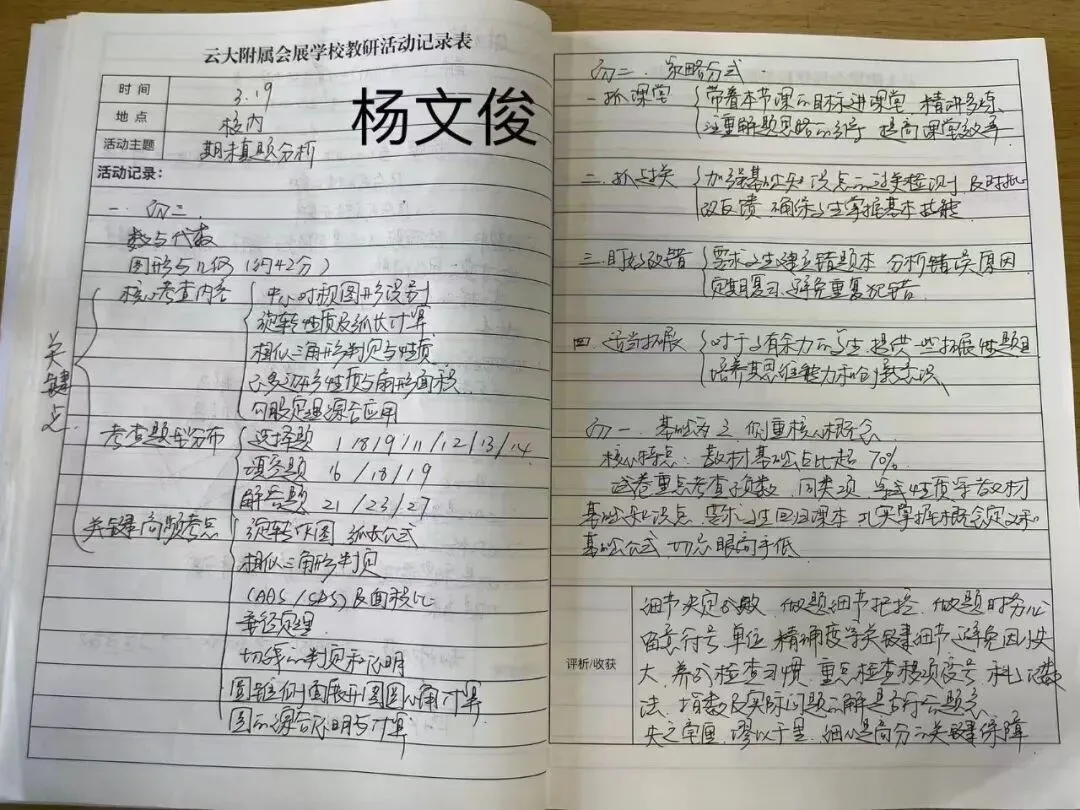 云大附属会展学校教研活动记录表
时间 3.19
地点 校内
活动主题 期末真题分析
杨文俊
活动记录:
一、初三
数与代数
图形与几何(约42分)
关键点
核心考查内容 中心对称图形识别
旋转性质及弧长计算
相似三角形判定与性质
正多边形性质与扇形面积
勾股定理综合应用
考查题型分布 选择题 1/8/9/11/12/13/14
填空题 16/18/19
解答题 21/23/27
关键高频考点 旋转作图 弧长公式
相似三角形判定
(AAS/SAS)及面积比
垂径定理
切线的判定和证明
圆锥侧面展开图圆心角计算
圆的综合证明与计算
初二、策略方式
一、抓课堂 带着本节课的目标进课堂,精讲多练
注重解题思路的引导 提高课堂效率
二、抓过关 加强基础知识点的过关检测 及时批
改反馈 确保学生掌握基本技能
三、盯好改错 要求学生建立错题本 分析错误原因
定期复习,避免重复犯错
四、适当拓展 对于学有余力的学生,提供一些拓展性题目
培养其思维能力和创新意识
初一、基础为主,侧重核心概念
核心特点:教材基础占比超70%
试卷重点考查了负数、同类项、等式性质等教材
基础知识点,要求学生回归课本,扎实掌握概念定义和
基础公式,切忌眼高手低
评析/收获
细节决定成败 做题细节把控,做题时务必
留意符号、单位、精确度等关键细节,避免因小失
大,养成检查习惯,重点检查移项变号、科学记数
法、指数及实际问题的解是否符合题意
失之毫厘,谬以千里,细心是高分的关键保障